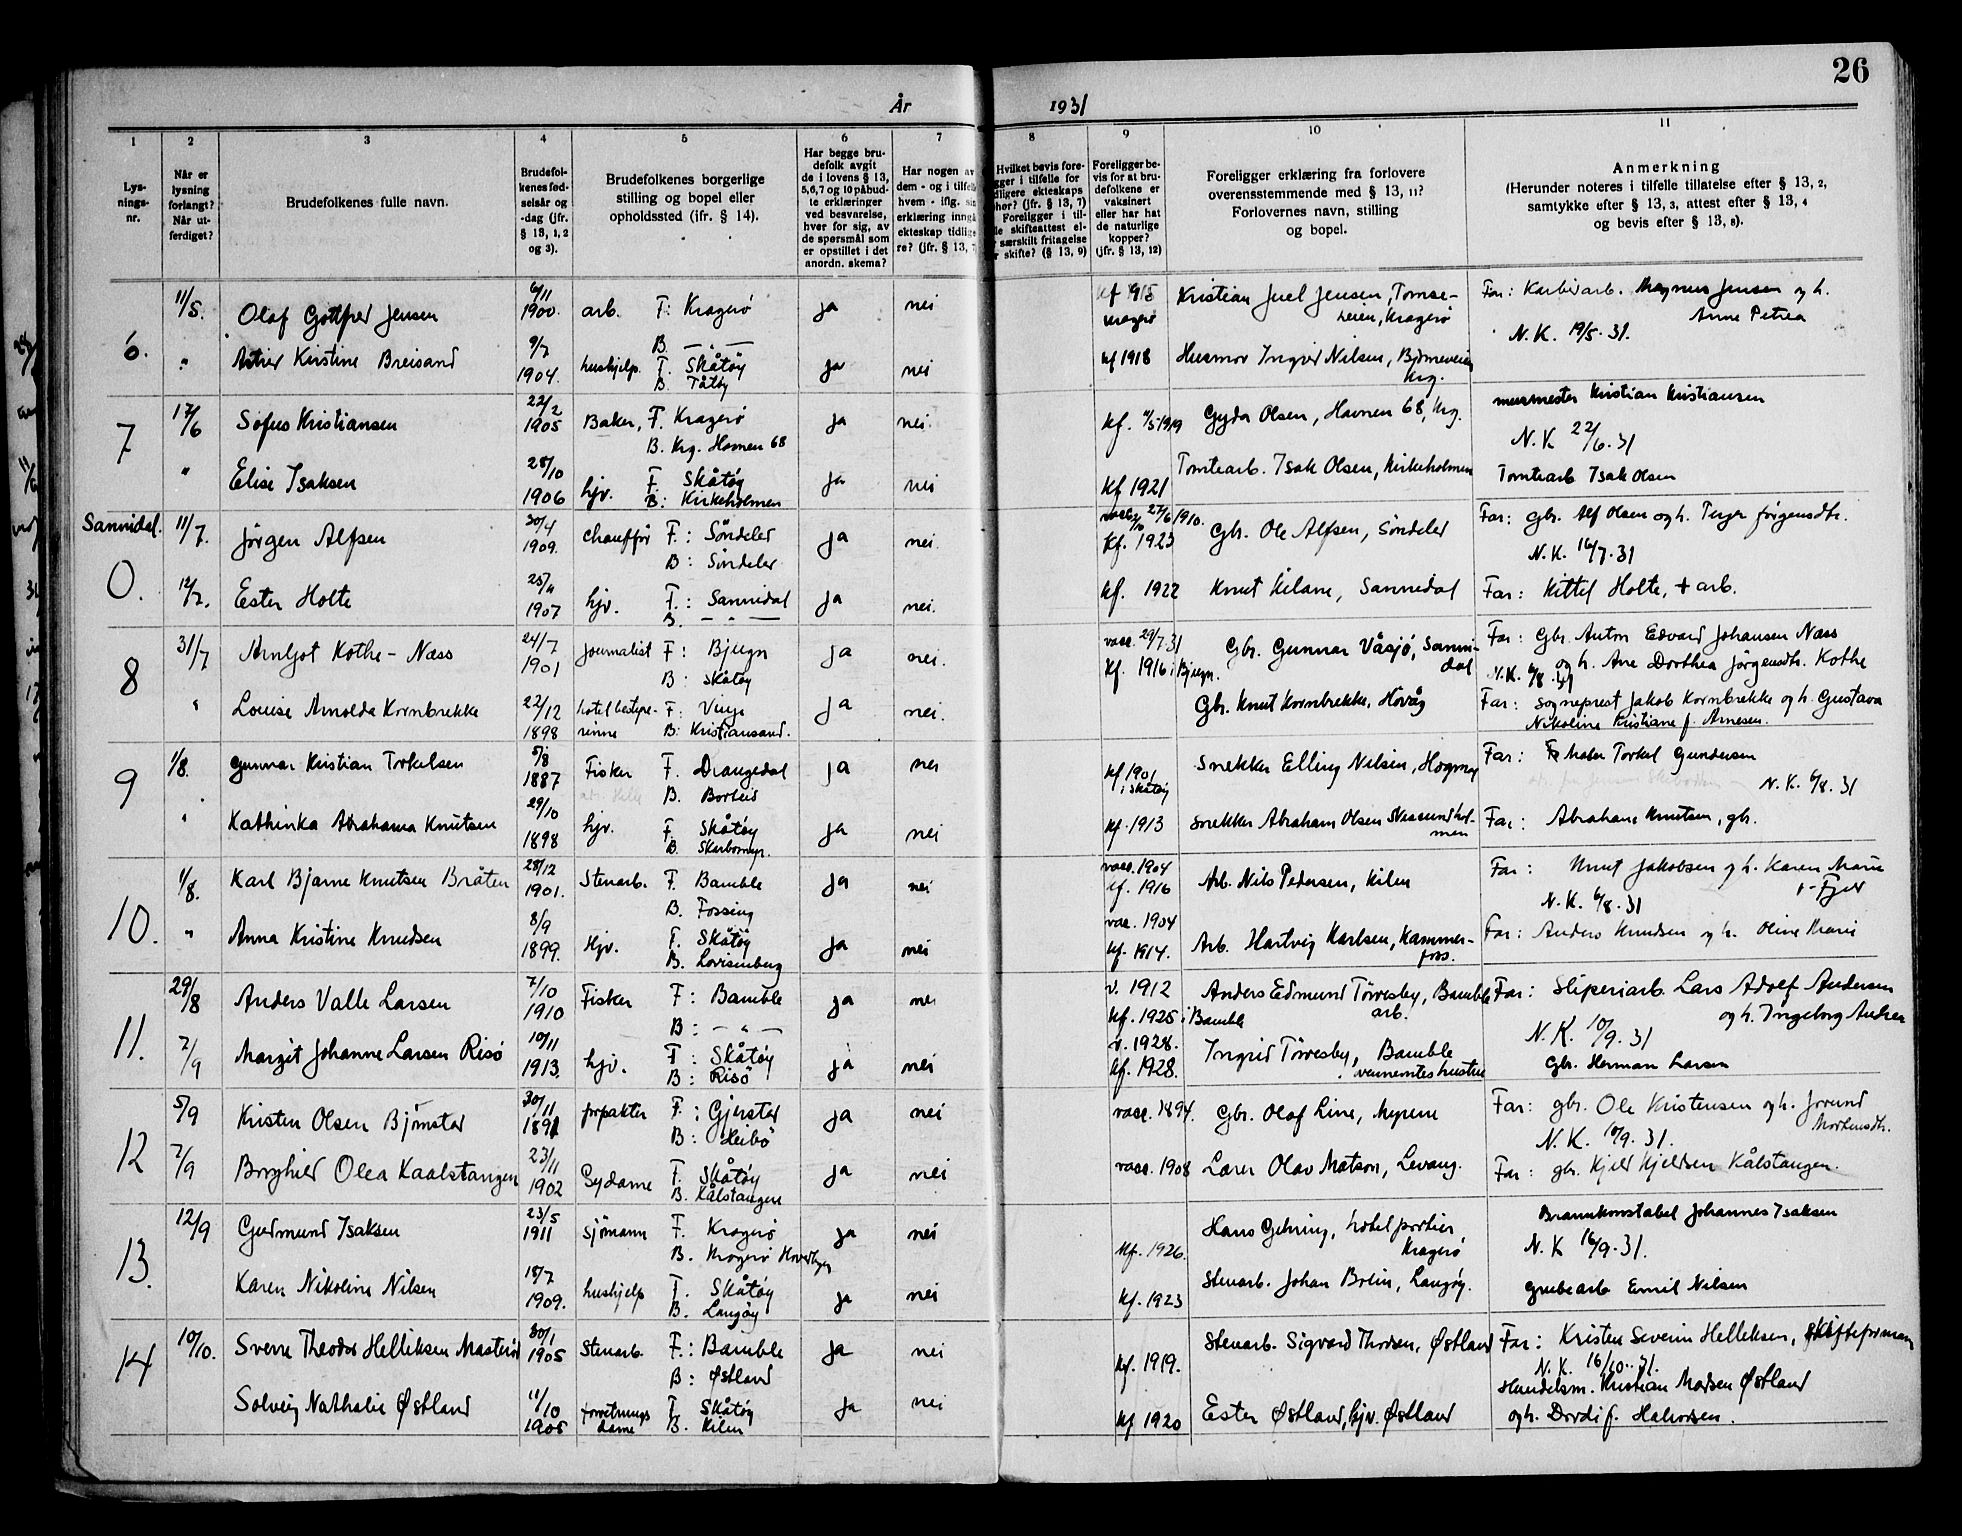 26
År 1931
1 2 3 4 5 6 7 8 9 10 11
Lys-
nings-
nr.
Når er
lysning
forlangt?
Når ut-
ferdiget?
Brudefolkenes fulle navn.
Brudefol-
kenes fød-
selsår og
-dag (jfr.
§ 13, 1, 2
og 3).
Brudefolkenes borgerlige
stilling og bopel eller
opholdssted (ifr. § 14).
Har begge bru-
defolk avgit
de i lovens § 13,
5,6,7 og 10 påbud-
te erklæringer
ved besvarelse,
hver for sig, av
de spørsmål som
er opstillet i det
anordn. skema?
Har nogen av
dem - og i tilfelle
hvem - iflg. sin
erklæring inngå
ekteskap tidlige
re? (jfr. § 13, 7
Hvilket bevis fore-
gger i tilfelle for
dligere ekteskaps
hør? (jfr. § 13, 7)
Foreligger i til-
le skifteattest el-
særskilt fritagelse
r skifte? (§ 13, 9)
Foreligger be-
vis for at bru-
defolkene er
vaksinert
eller har hat
de naturlige
kopper?
(jfr. § 13, 12)
Foreligger erklæring fra forlovere
overensstemmende med § 13, 11?
Forlovernes navn, stilling
og bopel.
Anmerkning
(Herunder noteres i tilfelle tillatelse efter § 13, 2,
samtykke efter § 13, 3, attest efter § 13, 4
og bevis efter § 13, 8).
6. 11/5. Olaf Gottfred Jensen 6/11 1900. arb. F: Kragerø ja nei kf 1915 Kragerø Kristian Juel Jensen, Tomse-
leren, Kragerø Far: Karbidarb. Magnus Jensen og h.
Anne Petrea
B. — " — N.K. 19/5.31.
" Astrid Kirstine Breisand 9/7 1904. hushjelp. F. Skåtøy ja nei kf 1918 Husmor Ingrid Nilsen,
B. Tåtøy Krg.
7 17/6 Sofus Kristiansen 22/2 1905 Baker, F. Kragerø ja nei. kf. 1919 Gyda Olsen, Havnen 68, Krg. murmester Kristian Kristiansen
B. Krg. Havnen 68 N.K 22/6.31
" Elise Isaksen 28/10 1906 hjv. F. Skåtøy ja nei kf 1921 Tomtearb. Isak Olsen, Kirkeholmen Tomtearb Isak Olsen
B: Kirkeholmen
Sannidal.
0. 11/7. Jørgen Alfsen 30/4 1909. chauffør F.: Søndeler ja nei. 27/6 1910. kf. 1923 Gbr. Ole Alfsen, Søndeler Far: gbr. Alf Olsen og h. Jørgensdtr.
B: Søndeler N.K. 16/7.31
12/7. Ester Holte 1907 hjv. F.: Sannidal ja nei. kf. 1922 Knut Kilane, Sannidal Far: Kittel Holte, + arb.
B. — " —
8 31/7 Arnljot Kothe-Næss 24/7 1901 journalist F: Bjugn ja nei. vacc. 29/7 31 Gbr. Gunnar Våsjø, Sanni-
dal Far: Gbr. Anton Edvard Johansen Næss
B: Skåtøy kf. 1916 i Bjugn. og h. Ane Dorthea Jørgensdtr. Kothe
N.K. 6/8.31
" Louise Arnolda Kornbrekke 22/12 1898 hotelbestyre-
rinne F: Vinje ja nei. Gbr. Knut Kornbrekke, Høvåg Far: sogneprest Jakob Kornbrekke og h. Gustava
B: Kristiansand. Nikoline Kristiane f. Arnesen.
9 1/8. Gunnar Kristian Torkelsen 5/8 1887 Fisker F. Drangedal ja nei kf 1901 i Skåtøy Snekker Elling Nilsen, Far: Torkel Gundersen
B. N.K. 6/8.31
" Kathinka Abrahama Knutsen 29/10 1898 hjv. F. Skåtøy ja nei kf. 1913 snekker Abraham Olsen Far: Abraham Knutsen, gbr.
10. 1/8. Karl Bjarne Knutsen Bråten 28/12 1901. Stenarb. F. Bamble ja nei vacc. 1904 kf. 1916 Arb. Nils Pedersen, Kilen Far: Knut Jakobsen og h. Karen Marie
B. Fossing N.K. 6/8.31
" Anna Kristine Knudsen 8/9 1899. Hjv. F. Skåtøy ja nei vac. 1904 kf. 1914. Arb. Hartvig Karlsen, Kammer-
foss. Far: Anders Knudsen og h. Oline Marie
B. Lovisenberg
11. 29/8 Anders Valle Larsen 7/10 1910 Fisker F: Bamble ja nei v. 1912 kf. 1925 i Bamble Anders Edmund Tørresby, Bamble
arb. Far: Sliperiarb. Lars Adolf Andersen
B: — " — og h. Ingeborg Andrea
N.K. 10/9.31
7/9 Margit Johanne Larsen Risø 10/11 1913. hjv. F: Skåtøy ja nei v. 1928. kf. 1928. Ingrid Tørresby, Bamble
vennemtes hustru Gbr. Herman Larsen
B: Risø
12 5/9 Kristen Olsen Bjørnstad 30/11 1891 forpakter F.: Gjerstad ja nei vacc. 1894. Gbr. Olaf Line, Myrene Far: gbr. Ole Kristensen og h. Jorund
Mortensdtr.
B: Heibø N.K. 10/9.31.
7/9 Borghild Olea Kaalstangen 23/11 1902 Sydame F. Skåtøy ja nei vacc. 1908 Lærer Olav Matson, Levang. Far: gbr. Kjeld Kjeldsen Kålstangen.
B. Kålstangen
13. 12/9 Gudmund Isaksen 23/5 1911 sjømann F. Kragerø ja nei kf. 1926. Hans Gehring, hotelportier,
Kragerø Brannkonstabel Johannes Isaksen
B. Kragerø N.K 16/9.31.
Karen Nikoline Nilsen 18/7 1909. hushjelp F. Skåtøy ja nei kf. 1923 Stenarb. Johan Brein, Langøy. grubearb Emil Nilsen
B. Langøy
14 10/10. Sverre Theodor Helleksen Masterød 30/1 1905 Stenarb. F.: Bamble ja nei kf. 1919. Stenarb. Sigvard Thorsen, Østland Far: Kristen Severin Helleksen, skifteformann
B: Østland N.K. 16/10.31.
Solveig Nathalie Østland 11/10 1905 forretnings
dame F. Skåtøy ja nei kf 1920 Ester Østland, hjv. Østland Handelsm. Kristian Madsen Østland
B. Kilen og h. Dordi f. Halvorsen.